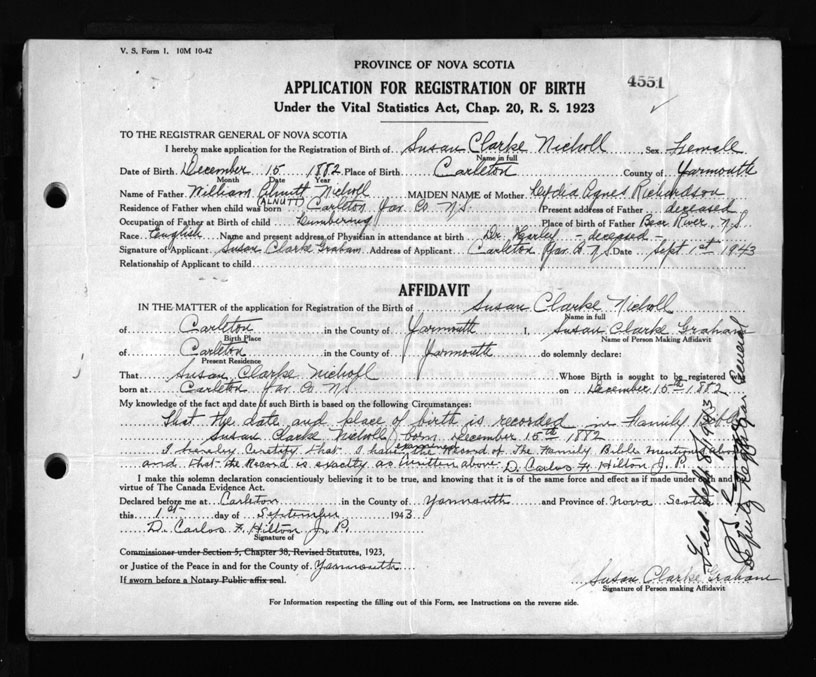 V. S. Form 1. 10M 10-42
PROVINCE OF NOVA SCOTIA
APPLICATION FOR REGISTRATION OF BIRTH 4551
Under the Vital Statistics Act, Chap. 20, R. S. 1923
TO THE REGISTRAR GENERAL OF NOVA SCOTIA
I hereby make application for the Registration of Birth of Susan Clarke Nicholl Sex Female
Name in full
Date of Birth December 15 1882 Place of Birth Carleton County of Yarmouth
Month Date Year
Name of Father William Nicholl MAIDEN NAME of Mother Lydia Agnes Richardson
(ALNUTT)
Residence of Father when child was born Carleton Yar. Co. N.S. Present address of Father deceased
Occupation of Father at Birth of child Lumbering Place of birth of Father Bear River, N.S.
Race English Name and present address of Physician in attendance at birth Dr. - deceased -
Signature of Applicant Susan Clarke Graham Address of Applicant Carleton Yar. Co. N.S. Date Sept 1st 1943
Relationship of Applicant to child
AFFIDAVIT
IN THE MATTER of the application for Registration of the Birth of Susan Clarke Nicholl
Name in full
of Carleton in the County of Yarmouth I, Susan Clarke Graham
Birth Place Name of Person Making Affidavit
of Carleton in the County of Yarmouth do solemnly declare:
Present Residence
That Susan Clarke Nicholl Whose Birth is sought to be registered
born at Carleton Yar. Co. N.S. on December 15th 1882
My knowledge of the fact and date of such Birth is based on the following Circumstances:
That the date and place of birth is recorded in Family Bible
Susan Clarke Nicholl born December 15th 1882
I hereby Certify that I have examined the Record of The Family Bible mentioned above
and that the Record is exactly as written above D. Carlos F. Hilton J. P.
I make this solemn declaration conscientiously believing it to be true, and knowing that it is of the same force and effect as if made under oath and
virtue of The Canada Evidence Act.
Declared before me at Carleton in the County of Yarmouth and Province of Nova Scotia
this 1st day of September 1943
D. Carlos F. Hilton J. P.
Signature of
Commissioner under Section 5, Chapter 38, Revised Statutes, 1923,
or Justice of the Peace in and for the County of Yarmouth
If sworn before a Notary Public affix seal.
Susan Clarke Graham
Signature of Person making Affidavit
For Information respecting the filling out of this Form, see Instructions on the reverse side.
Sept. 8/1943
Deputy General